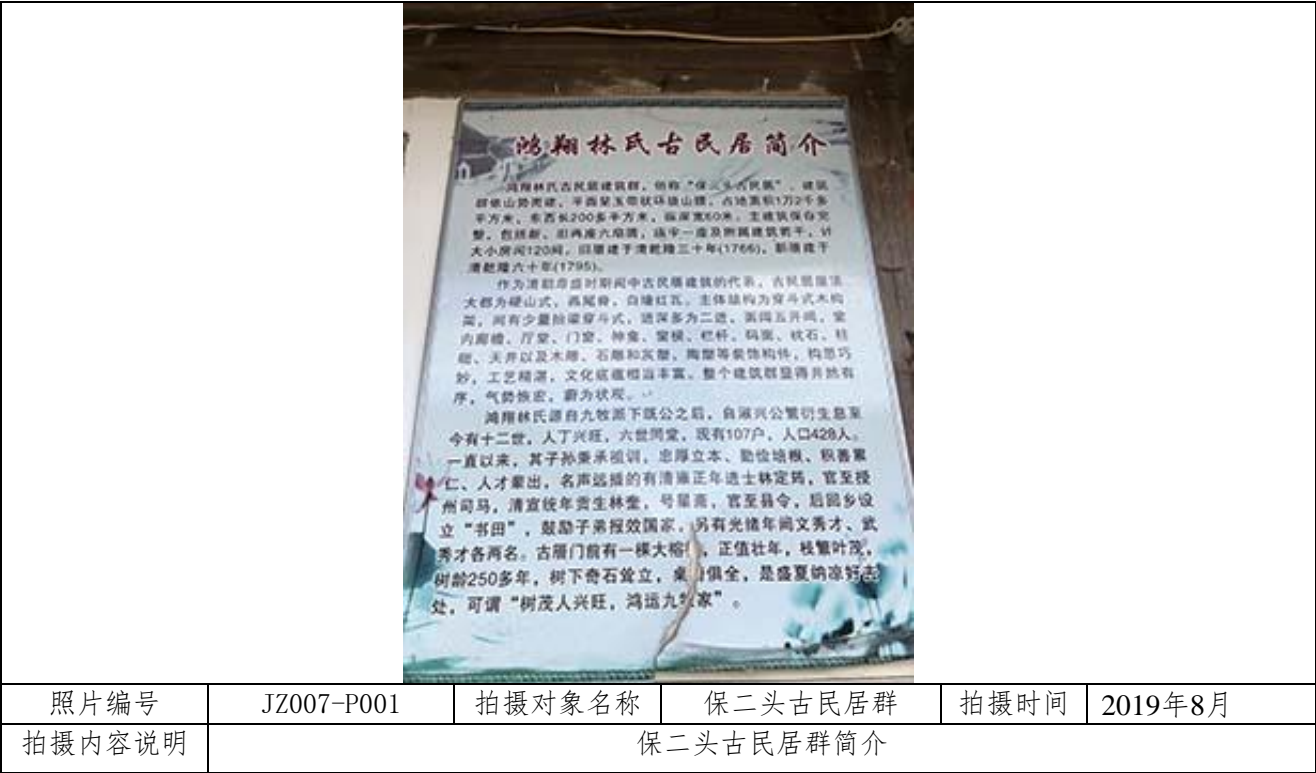 鸿翔林氏古民居简介
鸿翔林氏古民居建筑群，俗称“保二头古民居”，建筑
群依山势而建，平面呈玉带状环绕山腰，占地面积1万2千多
平方米，东西长200多平方米，纵深宽60米。主建筑保存完
整，包括新、旧两座六扇厝，庙宇一座及附属建筑若干，计
大小房间120间，旧厝建于清乾隆三十年(1766)，新厝建于
清乾隆六十年(1795)。
作为清朝鼎盛时期闽中古民居建筑的代表，古民居屋顶
大都为硬山式，燕尾脊，白墙红瓦。主体结构为穿斗式木构
架，间有少量抬梁穿斗式，进深多为二进，面阔五开间，堂
内廊檐、厅堂、门窗、神龛、窗棂、栏杆、码面、枕石、柱
础、天井以及木雕、石雕和灰塑，陶塑等装饰构件，构思巧
妙，工艺精湛，文化底蕴相当丰富。整个建筑群显得井然有
序，气势恢宏，蔚为状观。
鸿翔林氏源自九牧派下既公之后，自淑兴公繁衍生息至
今有十二世，人丁兴旺，六世同堂，现有107户，人口428人。
一直以来，其子孙秉承祖训，忠厚立本、勤俭培根、积善累
仁、人才辈出，名声远播的有清雍正年进士林定筠，官至授
州司马，清宣统年贡生林奎，号星高，官至县令，后回乡设
立“书田”，鼓励子弟报效国家，另有光绪年间文秀才、武
秀才各两名。古厝门前有一棵大榕，正值壮年，枝繁叶茂，
树龄250多年，树下奇石耸立，桌俱全，是盛夏纳凉好去
处，可谓“树茂人兴旺，鸿运九牧家”。
照片编号 JZ007-P001 拍摄对象名称 保二头古民居群 拍摄时间 2019年8月
拍摄内容说明 保二头古民居群简介